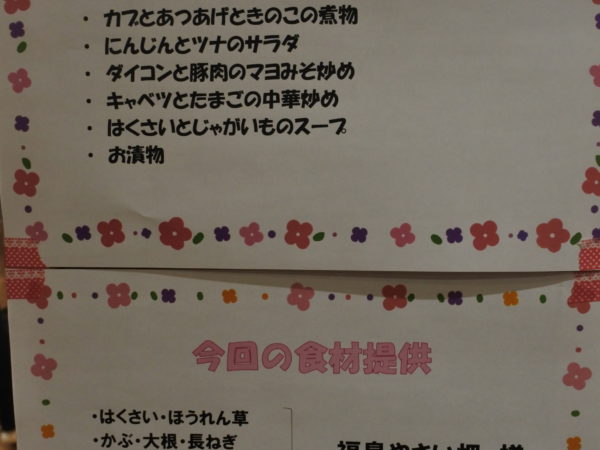 ・ カブとあつあげときのこの煮物
・ にんじんとツナのサラダ
・ ダイコンと豚肉のマヨみそ炒め
・ キャベツとたまごの中華炒め
・ はくさいとじゃがいものスープ
・ お漬物
今回の食材提供
・はくさい・ほうれん草
・かぶ・大根・長ねぎ
福島やさい畑 様